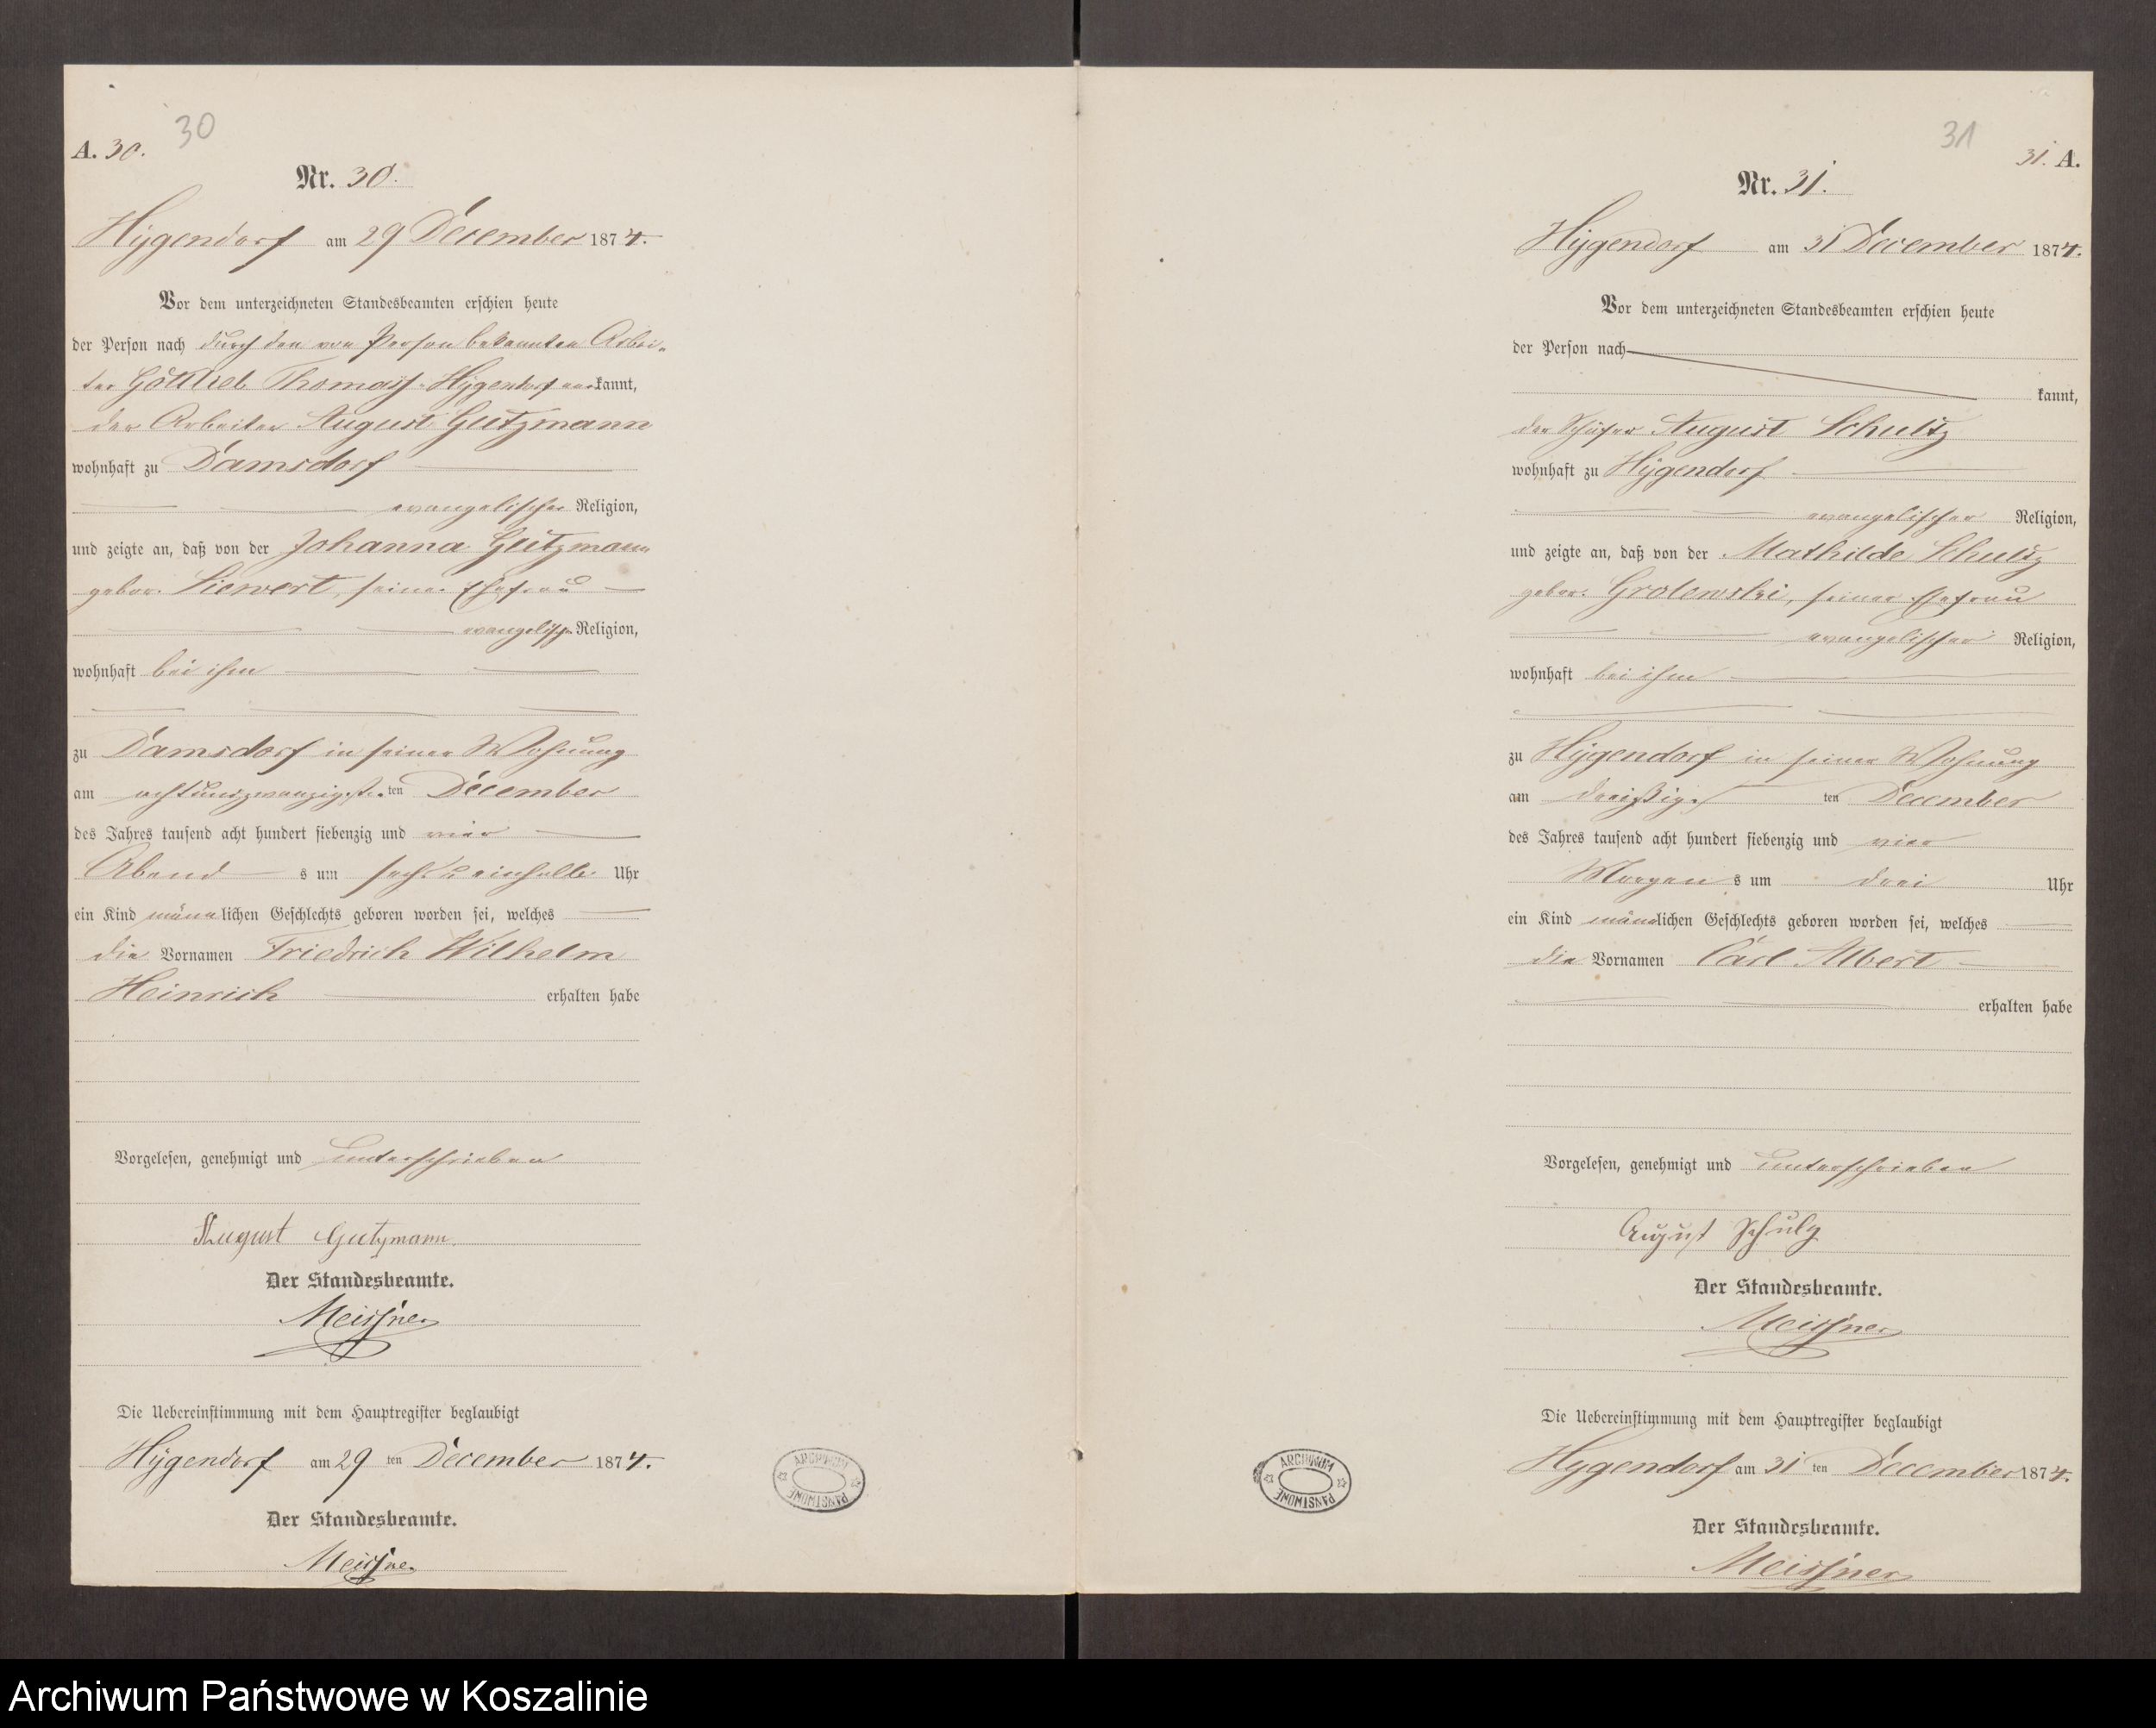 30
A. 30.
Nr. 30.
Hygendorf am 29 December 1874.
Vor dem unterzeichneten Standesbeamten erschien heute
der Person nach durch den von Person bekannten Arbei-
ter Gottlieb Thomasj-Hygendorf aner kannt,
der Arbeiter August Gutzmann
wohnhaft zu Damsdorf
evangelischer Religion,
und zeigte an, daß von der Johanna Gutzmann
gebor. Siewert, seiner Ehefrau
evangelisch. Religion,
wohnhaft bei ihm
zu Damsdorf in seiner Wohnung
am achtundzwanzigsten ten December
des Jahres tausend acht hundert siebenzig und vier
Abend s um sechs einhalb Uhr
ein Kind männlichen Geschlechts geboren worden sei, welches
die Vornamen Friedrich Wilhelm
Heinrich erhalten habe
Vorgelesen, genehmigt und unterschrieben
August Gutzmann.
Der Standesbeamte.
Meissner
Die Uebereinstimmung mit dem Hauptregister beglaubigt
Hygendorf am 29 ten December 1874.
Der Standesbeamte.
Meissner
ARCHIWUM PAŃSTWOWE
31
31. A.
Nr. 31.
Hygendorf am 31 December 1874.
Vor dem unterzeichneten Standesbeamten erschien heute
der Person nach
kannt,
der Schäfer August Schultz
wohnhaft zu Hygendorf
evangelischer Religion,
und zeigte an, daß von der Mathilde Schultz
gebor. Grolewski, seiner Ehefrau
evangelischer Religion,
wohnhaft bei ihm
zu Hygendorf in seiner Wohnung
am dreißigs ten December
des Jahres tausend acht hundert siebenzig und vier
Morgen s um drei Uhr
ein Kind männlichen Geschlechts geboren worden sei, welches
die Vornamen Carl Albert
erhalten habe
Vorgelesen, genehmigt und unterschrieben
August Schulz
Der Standesbeamte.
Meissner
Die Uebereinstimmung mit dem Hauptregister beglaubigt
Hygendorf am 31 ten December 1874.
Der Standesbeamte.
Meissner
ARCHIWUM PAŃSTWOWE
Archiwum Państwowe w Koszalinie